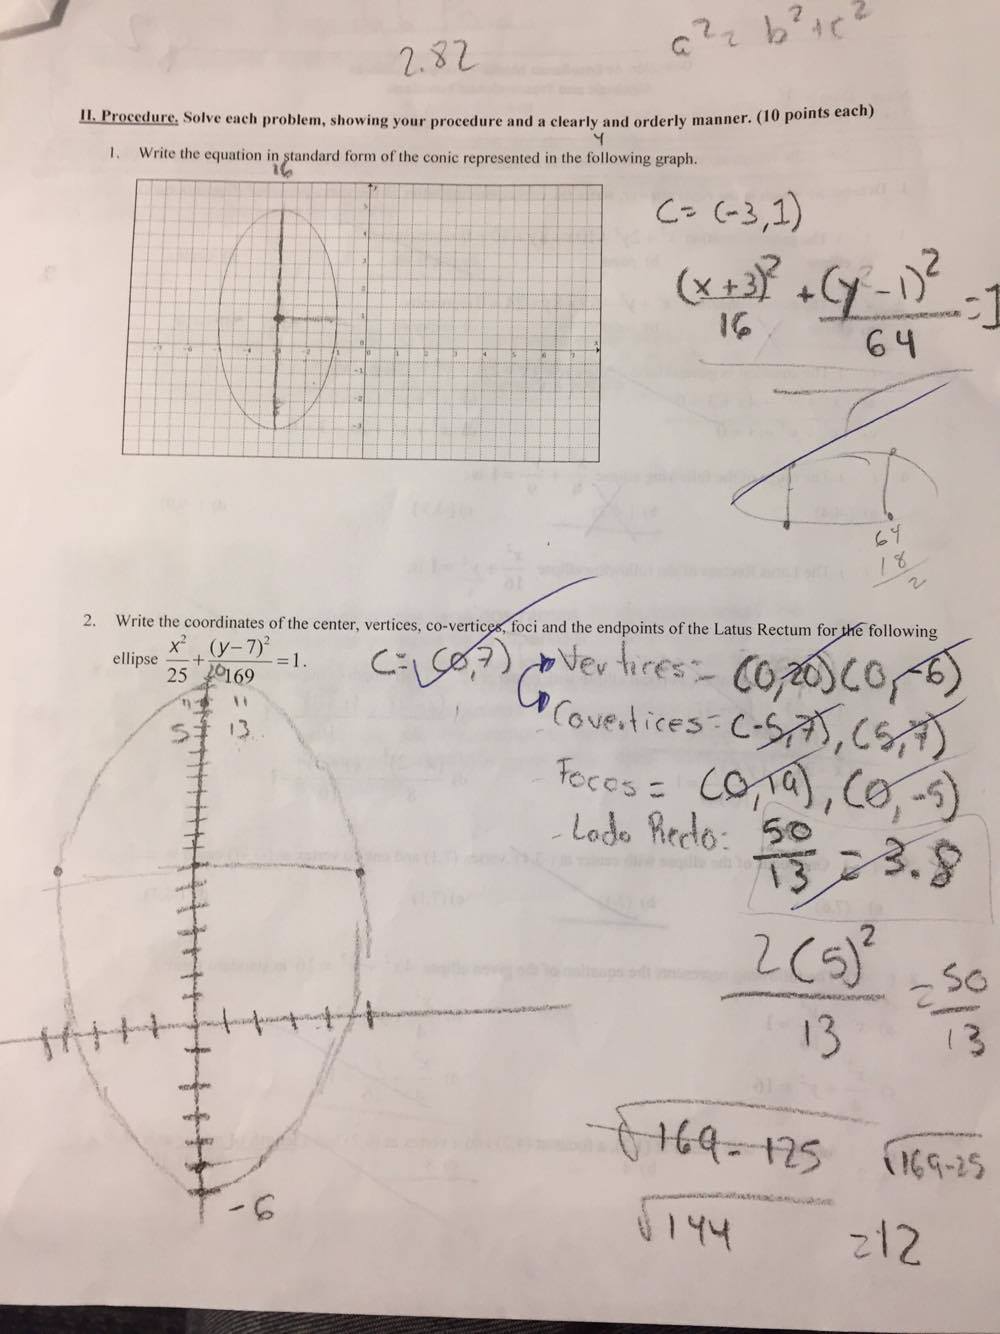 2.82
a² = b² + c²
II. Procedure. Solve each problem, showing your procedure and a clearly and orderly manner. (10 points each)
4
1. Write the equation in standard form of the conic represented in the following graph.
16
C = (-3,1)
(x + 3)² / 16 + (y - 1)² / 64 = 1
64
18
2
2. Write the coordinates of the center, vertices, co-vertices, foci and the endpoints of the Latus Rectum for the following
ellipse x²/25 + (y-7)²/169 = 1.
C = (0,7)
Vertices = (0,20) (0,-6)
Covertices = (-5,7), (5,7)
Focos = (0,19), (0,-5)
- Lado Recto: 50/13 = 3.8
20
11 11
5 13
2(5)² / 13 = 50/13
√169 - 125
√169-25
√144 = 12
-6